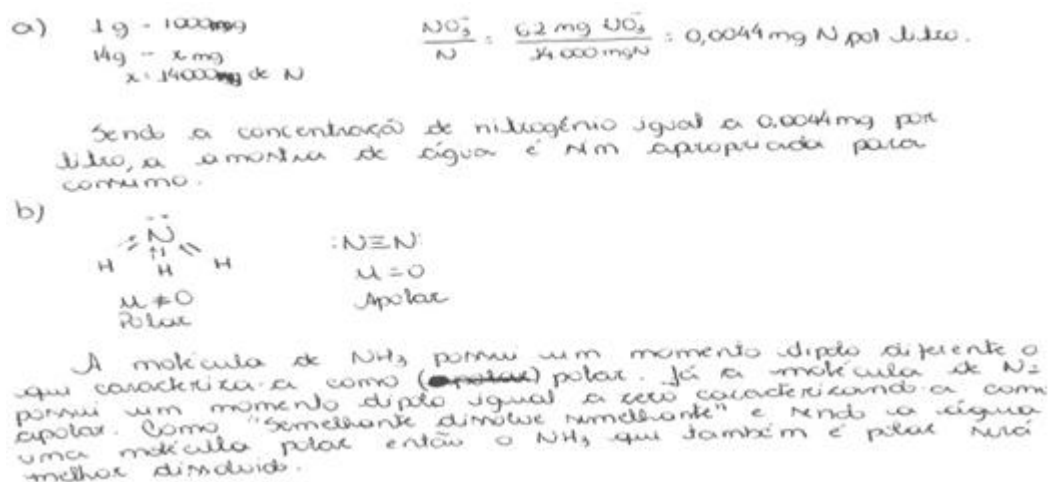 a) 1g - 1000mg
14g - x mg
x = 14000mg de N
NO₃⁻ / N = 62 mg NO₃⁻ / 14000mgN = 0,0044mg N por litro.
Sendo a concentração de nitrogênio igual a 0,0044mg por
litro, a amostra de água é sim apropriada para
consumo.
b)
N
H H H
μ ≠ 0
Polar
:N≡N:
μ = 0
Apolar
A molécula de NH₃ possui um momento dipolo diferente o
que caracteriza-a como (apolar) polar. Já a molécula de N₂
possui um momento dipolo igual a zero caracterizando-a como
apolar. Como "semelhante dissolve semelhante" e sendo a água
uma molécula polar então o NH₃ que também é polar será
melhor dissolvido.